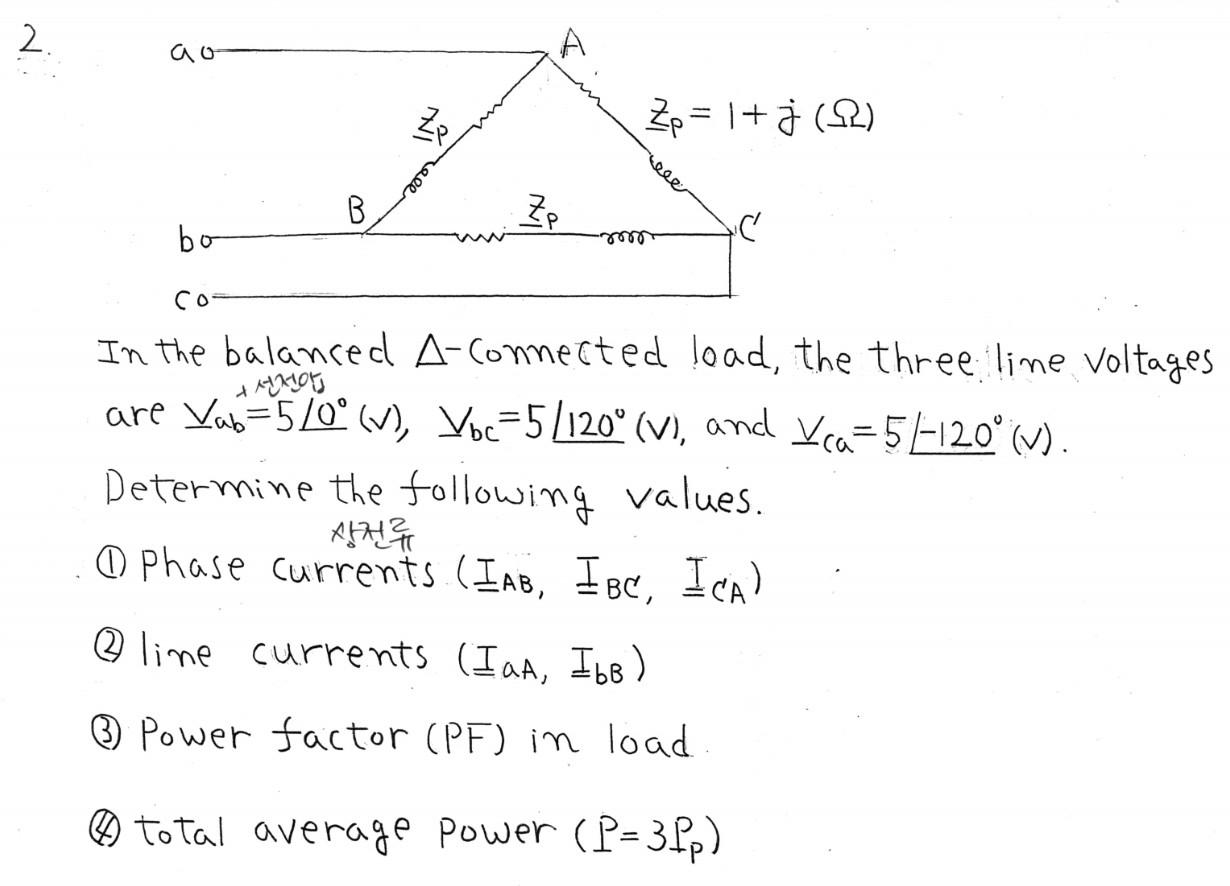 2.
a
A
Zp
Zp = 1 + j (Ω)
B
Zp
C
b
c
In the balanced Δ-connected load, the three line voltages
선전압
are Vab=5/0° (V), Vbc=5/120° (V), and Vca=5/-120° (V).
Determine the following values.
상전류
① Phase currents (IAB, IBC, ICA)
② line currents (IaA, IbB)
③ Power factor (PF) in load
④ total average power (P=3Pp)